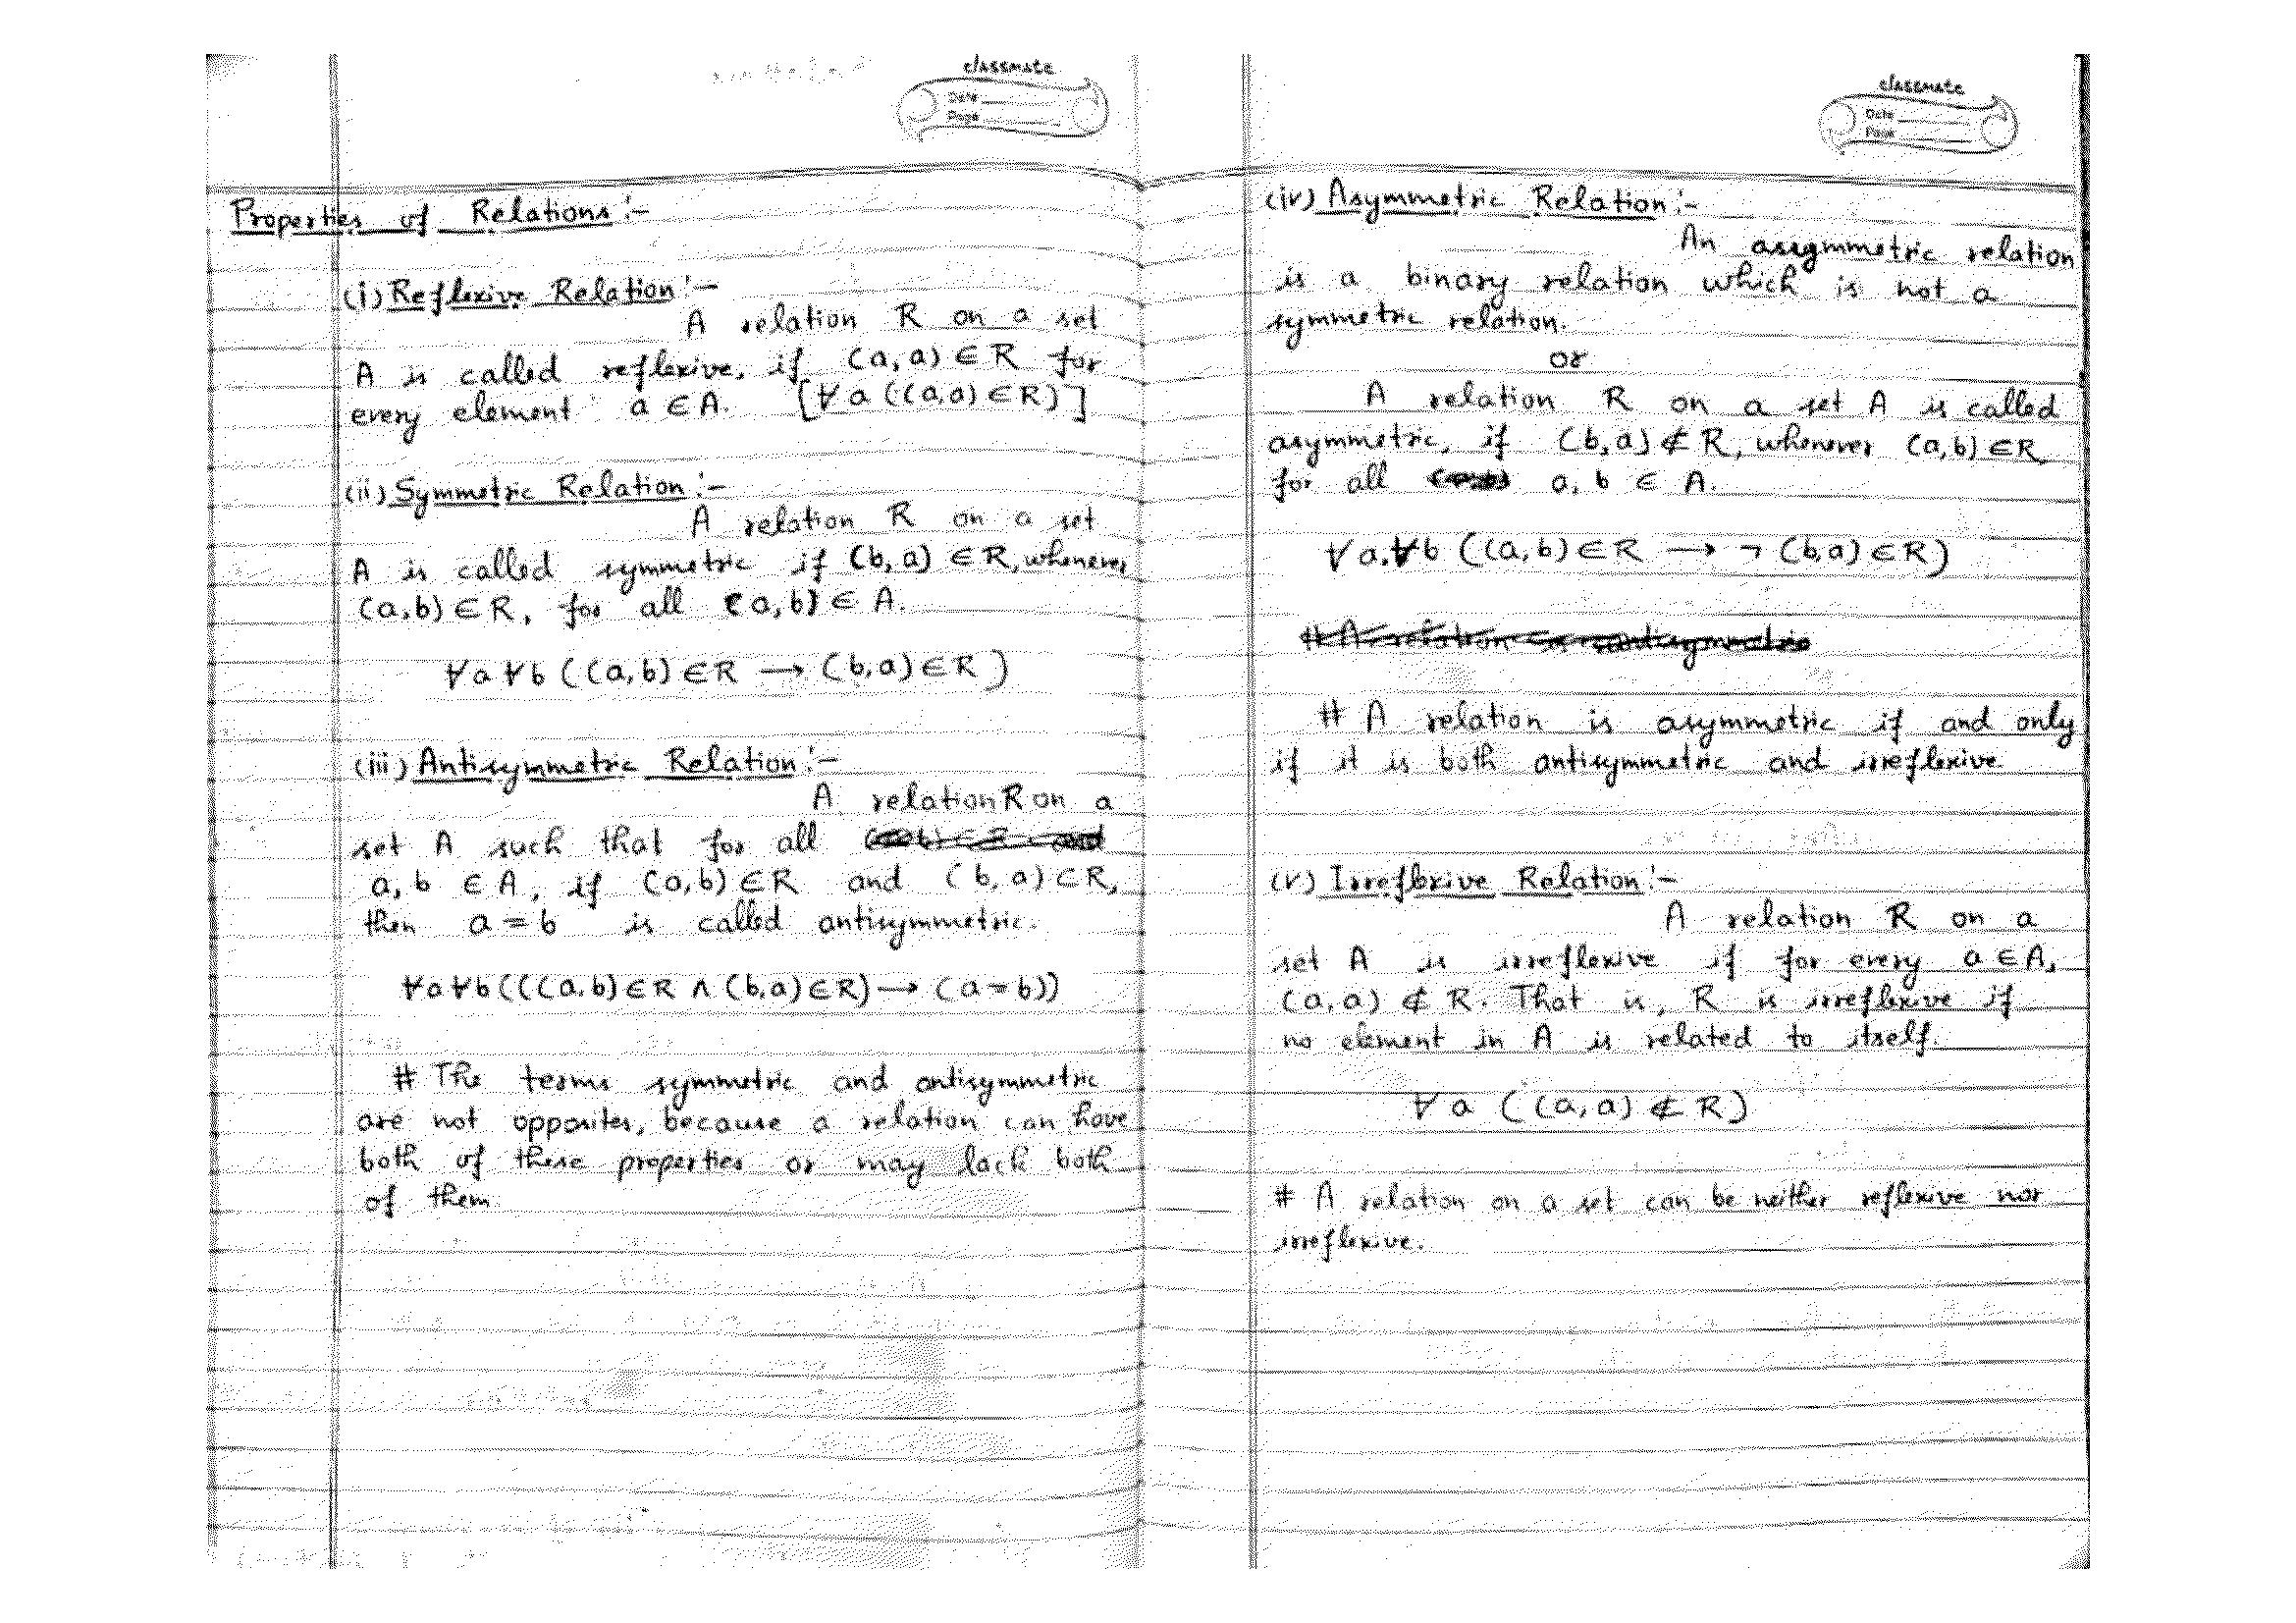 classmate
Date
Page
Properties of Relations :-
(i) Reflexive Relation :-
A relation R on a set
A is called reflexive, if (a,a) ∈ R for
every element a ∈ A. [∀a ((a,a) ∈ R)]
(ii) Symmetric Relation :-
A relation R on a set
A is called symmetric if (b,a) ∈ R, whenever
(a,b) ∈ R, for all (a,b) ∈ A.
∀a ∀b ((a,b) ∈ R ⟶ (b,a) ∈ R)
(iii) Antisymmetric Relation :-
A relation R on a
set A such that for all
a, b ∈ A, if (a,b) ∈ R and (b,a) ∈ R,
then a = b is called antisymmetric.
∀a ∀b (((a,b) ∈ R ∧ (b,a) ∈ R) ⟶ (a = b))
# The terms symmetric and antisymmetric
are not opposites, because a relation can have
both of these properties or may lack both
of them.
classmate
Date
Page
(iv) Asymmetric Relation :-
An assymmetric relation
is a binary relation which is not a
symmetric relation.
or
A relation R on a set A is called
asymmetric, if (b,a) ∉ R, whenever (a,b) ∈ R
for all a, b ∈ A.
∀a.∀b ((a,b) ∈ R ⟶ ¬ (b,a) ∈ R)
# A relation is
# A relation is asymmetric if and only
if it is both antisymmetric and irreflexive
(v) Irreflexive Relation :-
A relation R on a
set A is irreflexive if for every a ∈ A,
(a,a) ∉ R. That is, R is irreflexive if
no element in A is related to itself.
∀ a ((a,a) ∉ R)
# A relation on a set can be neither reflexive nor
irreflexive.